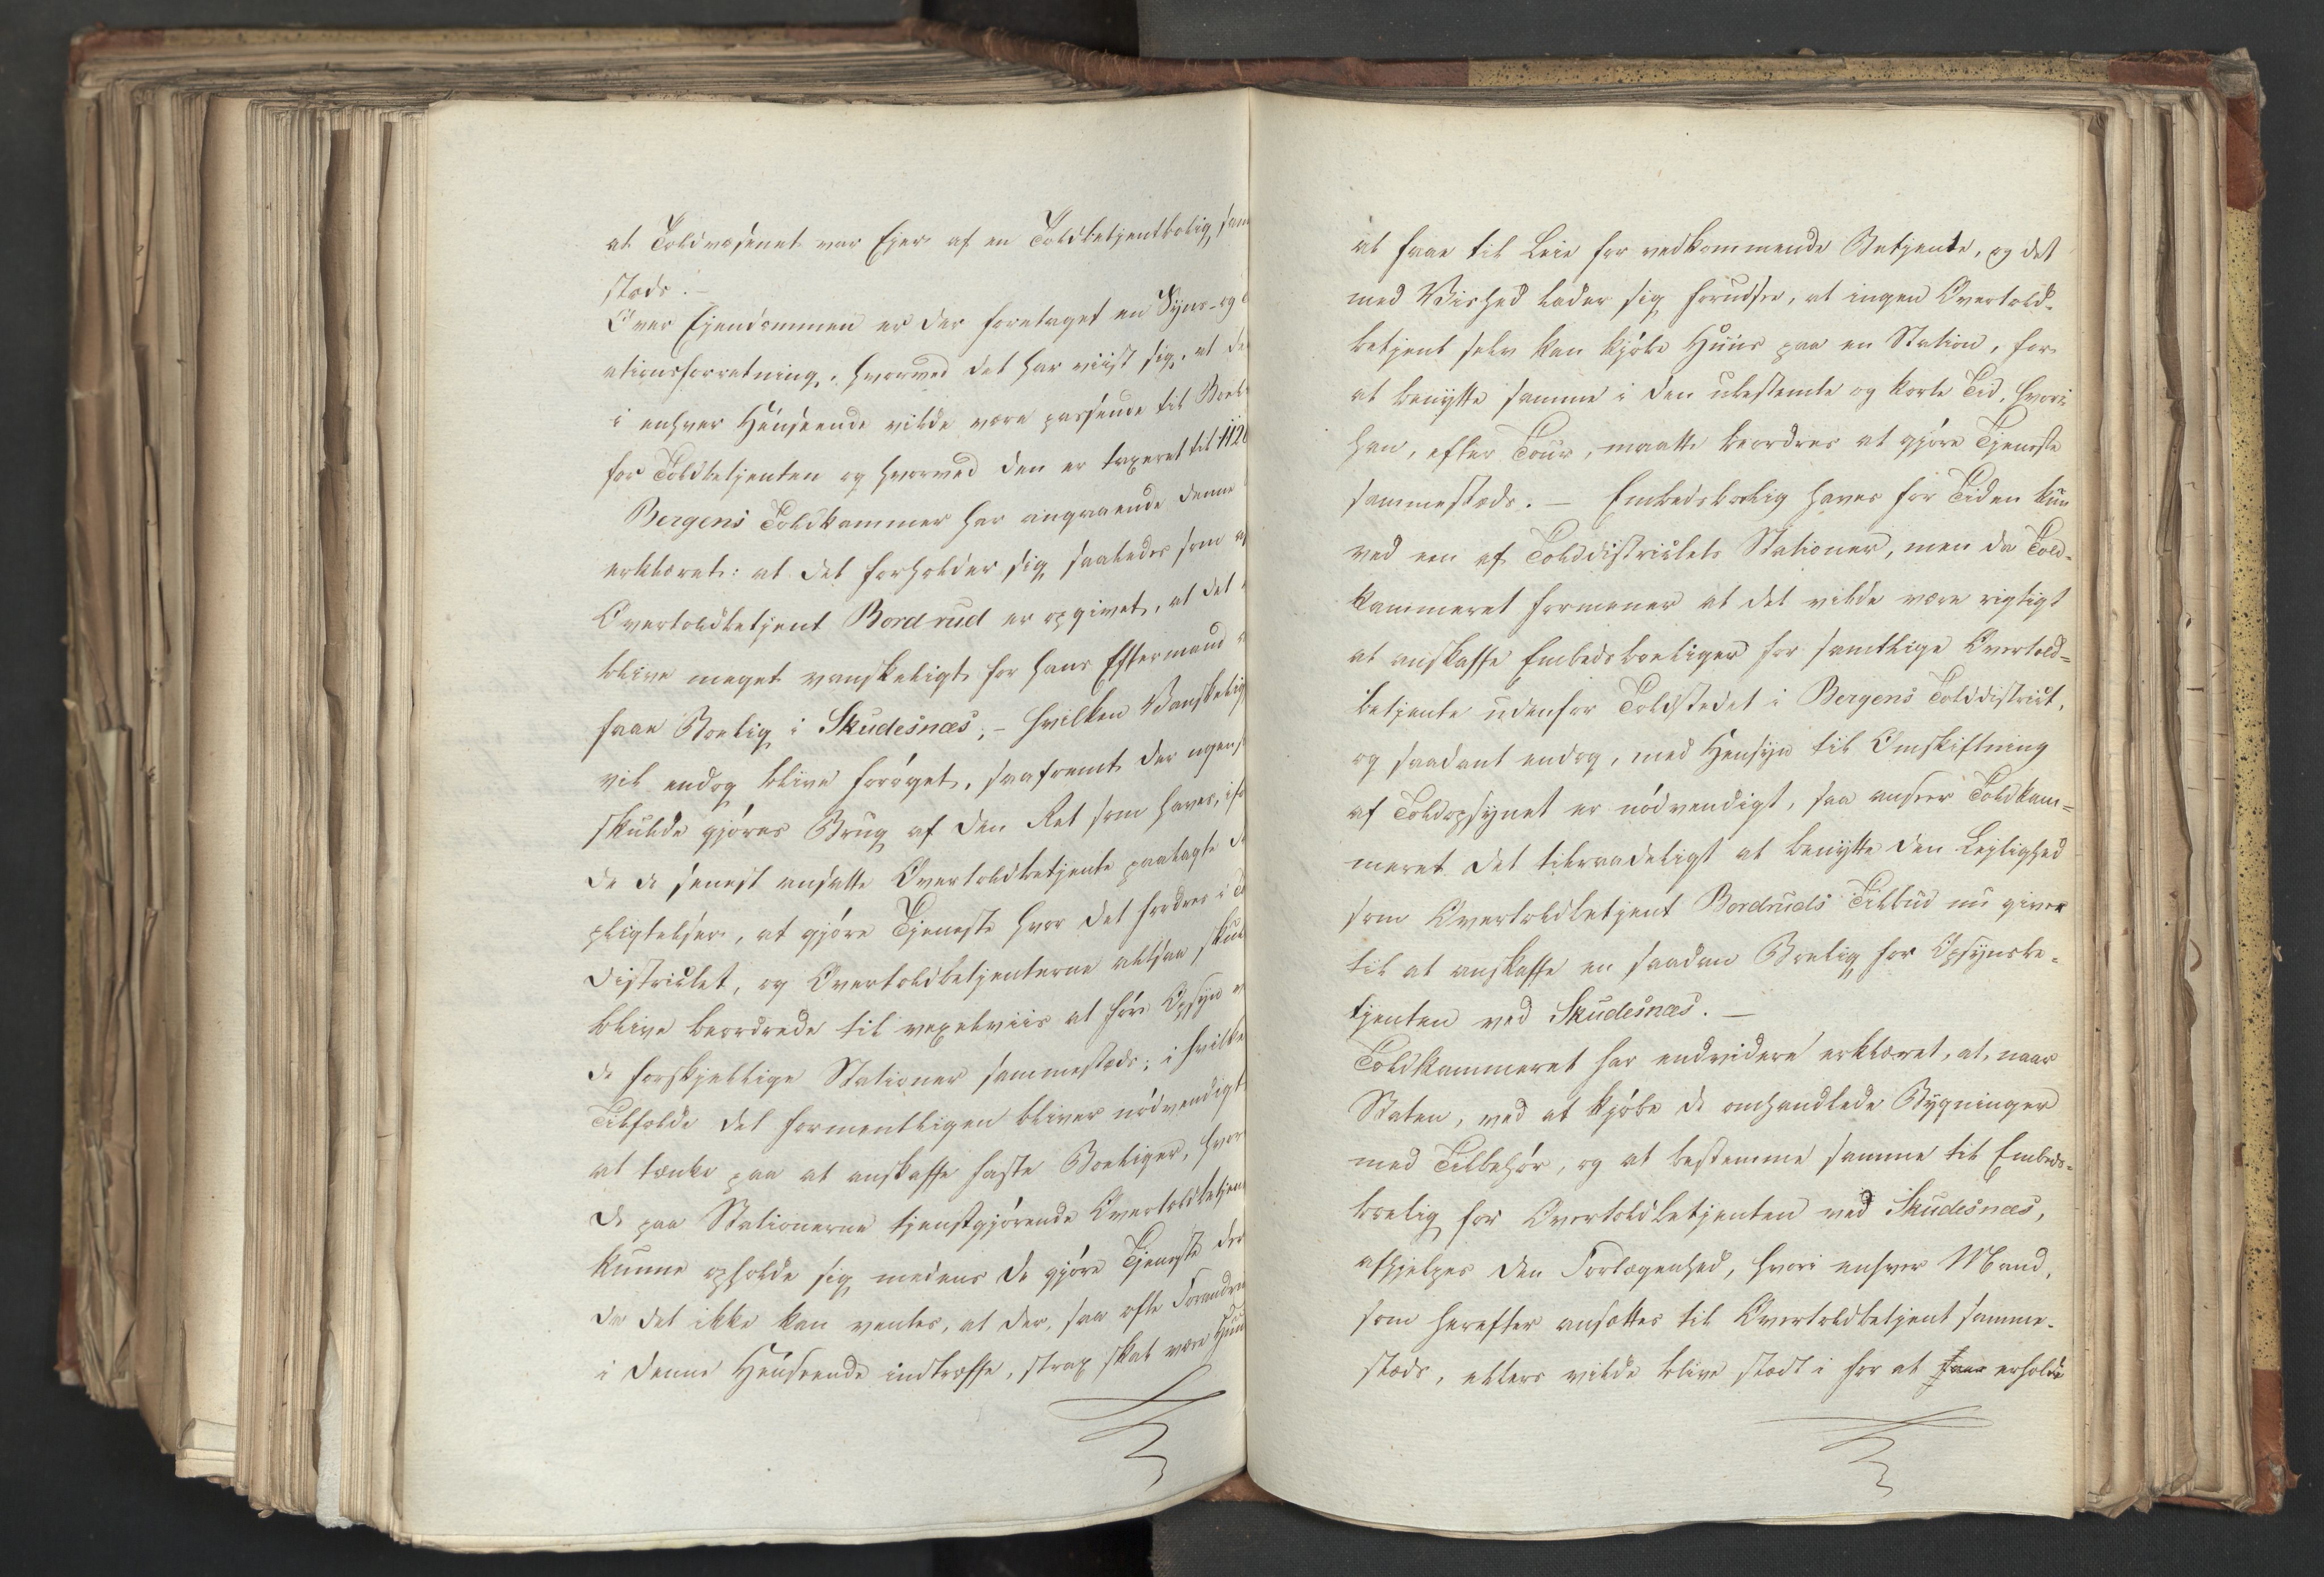 at Toldvæsenet var Ejer af en Toldbetjentbolig sam
steds. –
Over Ejendommen er der foretaget en Syns- og
ationsforretning, hvorved det har viist sig, at de
i enhver Henseende vilde være passende til Boel
for Toldbetjenten og hvorved den er taxeret til 1120
Bergens Toldkammer har angaaende denne
erklæret: at det forholder sig saaledes som af
Overtoldbetjent Bordrud er opgivet, at det
blive meget vanskeligt for hans Eftermand
faae Boelig i Skudesnæs, – hvilken Vanskelig
vil endog blive forøget, saafremt der ogens
skulde gjøres Brug af den Ret som haves, ifø
de de senest ansatte Overtoldbetjente paalagte
pligtelser, at gjøre Tjeneste hvor det fordres i T
districtet, og Overtoldbetjenterne altsaa skul
blive beordrede til vexelviis at føre Opsyn
de forskjellige Stationer sammesteds; i hvilke
Tilfælde det formentligen bliver nødvendigt
at tænke paa at anskaffe faste Boeliger, hvor
de paa Stationerne tjenstgjørende Overtoldbetjen
kunne opholde sig medens de gjøre Tjeneste der
da det ikke kan ventes, at der, saa ofte Forandr
i denne Henseende indtræffe, strax skal være Huus
at faae til Leie for vedkommende Betjente, og det
med Vished lader sig forudsee, at ingen Overtold-
betjent selv kan kjøbe Huus paa en Station, for
at benytte samme i den ubestemte og korte Tid, hvori
han, efter Tour, maatte beordres at gjøre Tjeneste
sammesteds. – Embedsbolig haves for Tiden kun
ved een af Tolddistrictets Stationer, men da Told-
kammeret formener at det vilde være rigtigt
at anskaffe Embedsboeliger for samtlige Overtold=
betjente udenfor Toldstedet i Bergens Tolddistrict,
og saadant endog, med Hensyn til Omskiftning
af Toldopsynet er nødvendigt, saa anseer Toldkam=
meret det tilraadeligt at benytte den Leilighed
som Overtoldbetjent Bordruds Tilbud nu giver
til at anskaffe en saadan Boelig for Opsynsbe-
tjenten ved Skudesnæs. –
Toldkammeret har endvidere erklæret, at, naar
Staten, ved at kjøbe de omhandlede Bygninger
med Tilbehør, og at bestemme samme til Embeds-
boelig for Overtoldbetjenten ved Skudesnæs,
afhjelpes den Forlegenhed, hvori enhver Mand,
som herefter ansættes til Overtoldbetjent samme-
steds, ellers vilde blive stædt i for at faae erholde